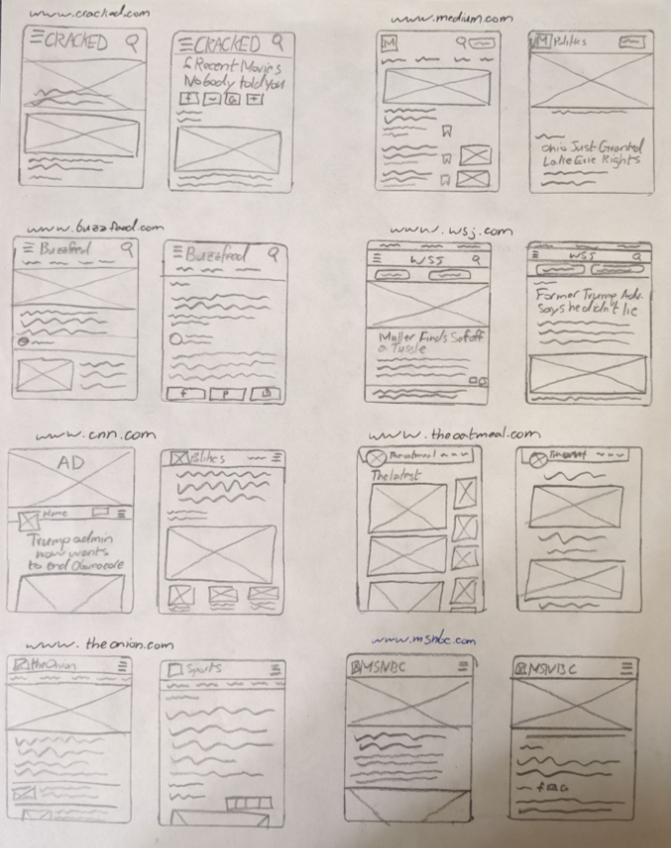 www.cracked.com
CRACKED
CRACKED
6 Recent Movies
Nobody told you
f
G
+
www.medium.com
M
M Politics
Ohio Just Granted
Lake Erie Rights
www.buzzfeed.com
Buzzfeed
Buzzfeed
f
P
www.wsj.com
WSJ
Muller Finds
a Tussle
WSJ
Former Trump Adv.
says he didn't lie
www.cnn.com
AD
Home
Trump admin
now wants
to end Obamacare
Politics
www.theoatmeal.com
The oatmeal
The latest
www.theonion.com
the Onion
Sports
www.msnbc.com
MSNBC
MSNBC
f
G